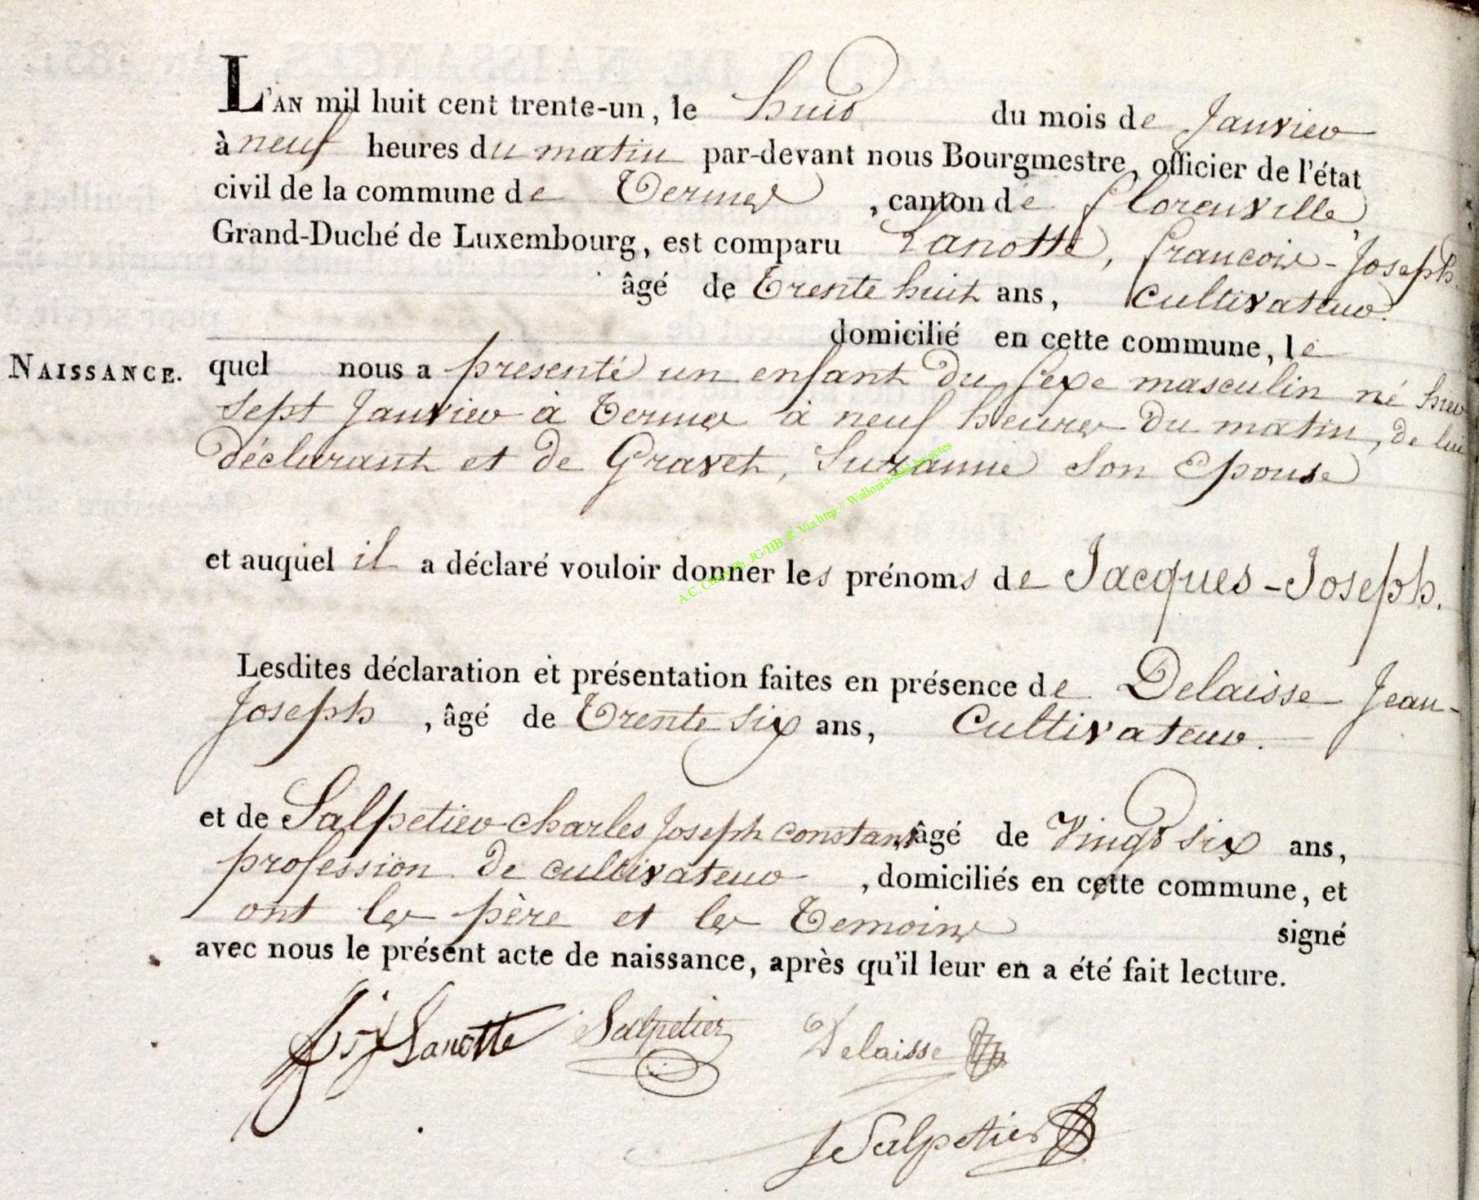 L'AN mil huit cent trente-un, le huit du mois de Janvier
à neuf heures du matin par-devant nous Bourgmestre, officier de l'état
civil de la commune de Termes, canton de florenville,
Grand-Duché de Luxembourg, est comparu Lanotte, francois-Joseph.
âgé de Trente huit ans, cultivateur.
domicilié en cette commune, le
NAISSANCE. quel nous a presenté un enfant du sexe masculin né hier
sept Janvier à Termes à neuf heures du matin, de lui
déclarant et de Gravet, Suzanne son Epouse
et auquel il a déclaré vouloir donner les prénoms de Jacques-Joseph.
Lesdites déclaration et présentation faites en présence de Delaisse Jean-
Joseph, âgé de Trente six ans, Cultivateur.
et de Salpetier Charles Joseph constant, âgé de Vingt six ans,
profession de cultivateur, domiciliés en cette commune, et
ont les père et les Temoins signé
avec nous le présent acte de naissance, après qu'il leur en a été fait lecture.
Lanotte Salpetier Delaisse
J Salpetier